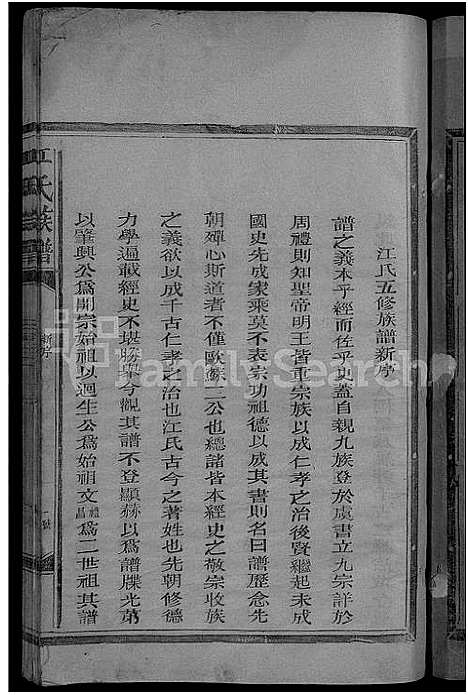 江氏五修族譜新序
譜之義本乎經而佐乎史蓋自親九族登於虞書立九宗詳於
周禮則知聖帝明王皆重宗族以成仁孝之治後賢繼起未成
國史先成家乘莫不表宗功祖德以成其書則名曰譜歷念先
朝殫心斯道者不僅歐蘇二公也總諸皆本經史之敬宗收族
之義欲以成千古仁孝之治也江氏古今之著姓也先朝修德
力學遍載經史不堪勝舉今觀其譜不登顯赫以為譜牒光第
以肇興公為開宗始祖以迴生公為始祖文禮昌為二世祖其譜
江氏族譜
新序
一
FamilySearch